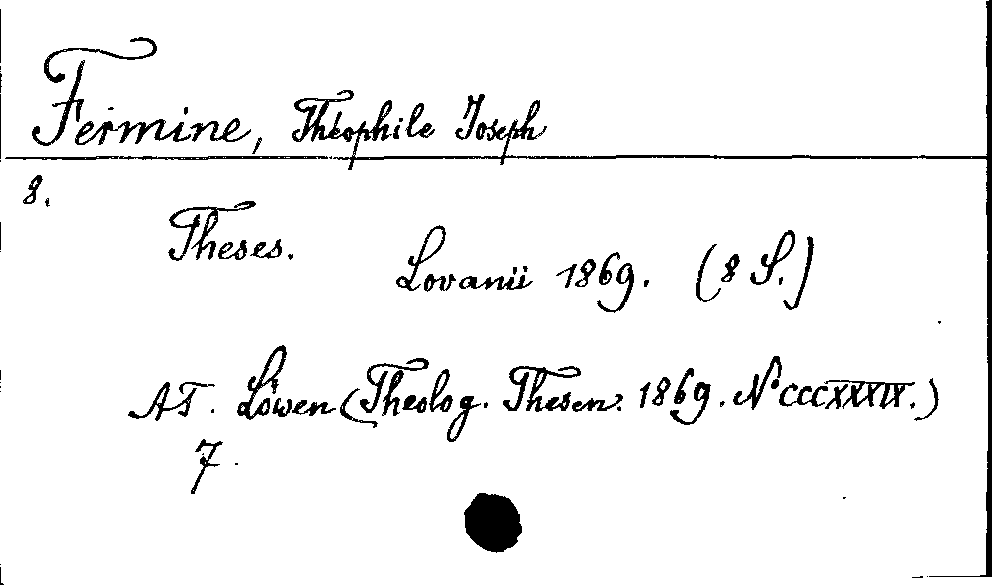 Fermine, Théophile Joseph
8.
Theses.
Lovanii 1869. (8 S.)
AT. Löwen (Theolog. Thesen. 1869. No CCCXXXIX.)
7